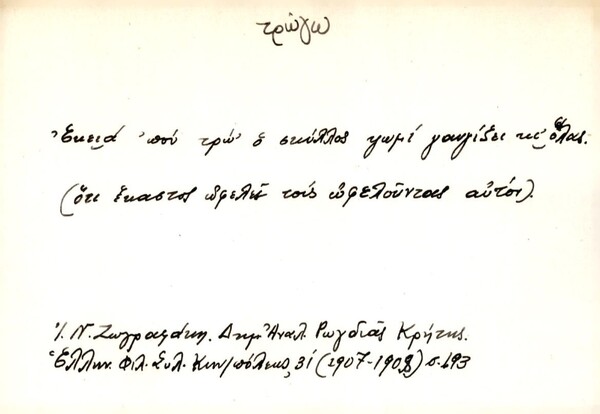 τρώγω
Ἐκειά 'πού τρώ' ὁ σκύλλος ψωμί γαυγίζει κι' ὅλας.
(ὅτι ἕκαστος ὠφελεῖ τούς ὠφελοῦντας αὐτόν).
Ἰ. Ν. Ζωγραφάκη. Δημ. Ἀναλ. Ρωγδιᾶς Κρήτης.
Ἑλλην. Φιλ. Συλ. Κων/πόλεως, 31 (1907-1908) σ. 193